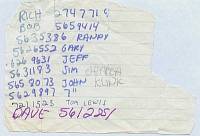 RICH 274771
BOB 5659414
5635386 RANDY
5626552 GARY
626 9631 JEFF
5631183 JIM
565 8073 JOHN
5629897 "
7221523 TOM LEWIS
DAVE 5612251